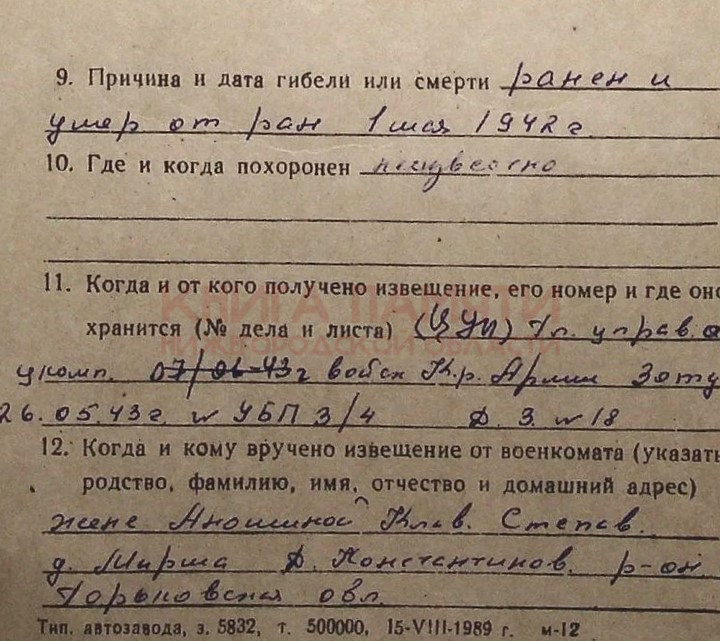 9. Причина и дата гибели или смерти ранен и
умер от ран 1 мая 1942 г.
10. Где и когда похоронен неизвестно
11. Когда и от кого получено извещение, его номер и где оно
хранится (№ дела и листа) Гл. управ.
укомп. 07/06-43 г войск Кр. Армии
26.05.43 г. № УБП 3/4 Д. 3. № 18
12. Когда и кому вручено извещение от военкомата (указать
родство, фамилию, имя, отчество и домашний адрес)
жене Аношиной Клав. Степав.
д. Мирша Д. Константинов. р-он
Горьковская обл.
Тип. автозавода, з. 5832, т. 500000, 15-VIII-1989 г. м-12
КНИГА ПАМЯТИ
НИЖЕГОРОДСКОЙ ОБЛАСТИ